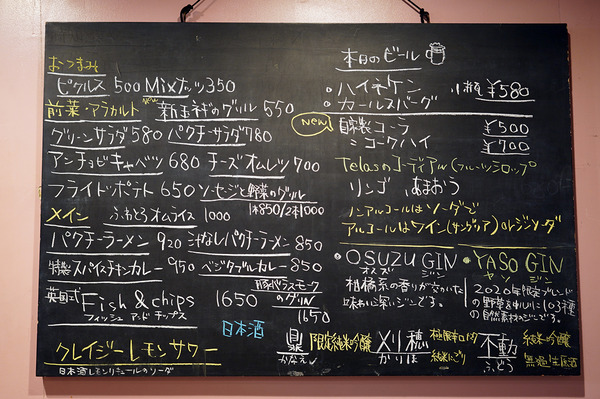 おつまみ
ピクルス 500 Mixナッツ 350
前菜・アラカルト new 新玉ネギのグリル 550
グリーンサラダ 580 パクチーサラダ 780
アンチョビキャベツ 680 チーズオムレツ 700
フライドポテト 650 ソーセージと野菜のグリル
1本850/2本1000
メイン ふわとろオムライス 1000
パクチーラーメン 920 汁なしパクチーラーメン 850
特製スパイスチキンカレー 950 ベジタブルカレー 850
英国式 Fish & chips 1650
フィッシュ アンド チップス
豚バラスモーク
のグリル
1650
日本酒
クレイジーレモンサワー
日本酒レモンリキュールのソーダ
本日のビール
ハイネケン 小瓶 ¥580
カールスバーグ
NEW
自家製コーラ ¥500
〃 コークハイ ¥700
Telasのコーディアル(フルーツシロップ
リンゴ 、あまおう
ノンアルコールはソーダで
アルコールはワイン(サングリア)orジンソーダ
OSUZU GIN
オスズ ジン
柑橘系の香りが
味わい深いジンです。
YASO GIN
ヤソ ジン
2020年限定ブレンド
の野草を中心に103種
の自然素材のジンです。
鼎 限定純米吟醸
かなえ
刈穂
かりほ 純米にごり
不動 純米吟醸
ふどう 無濾過生原酒